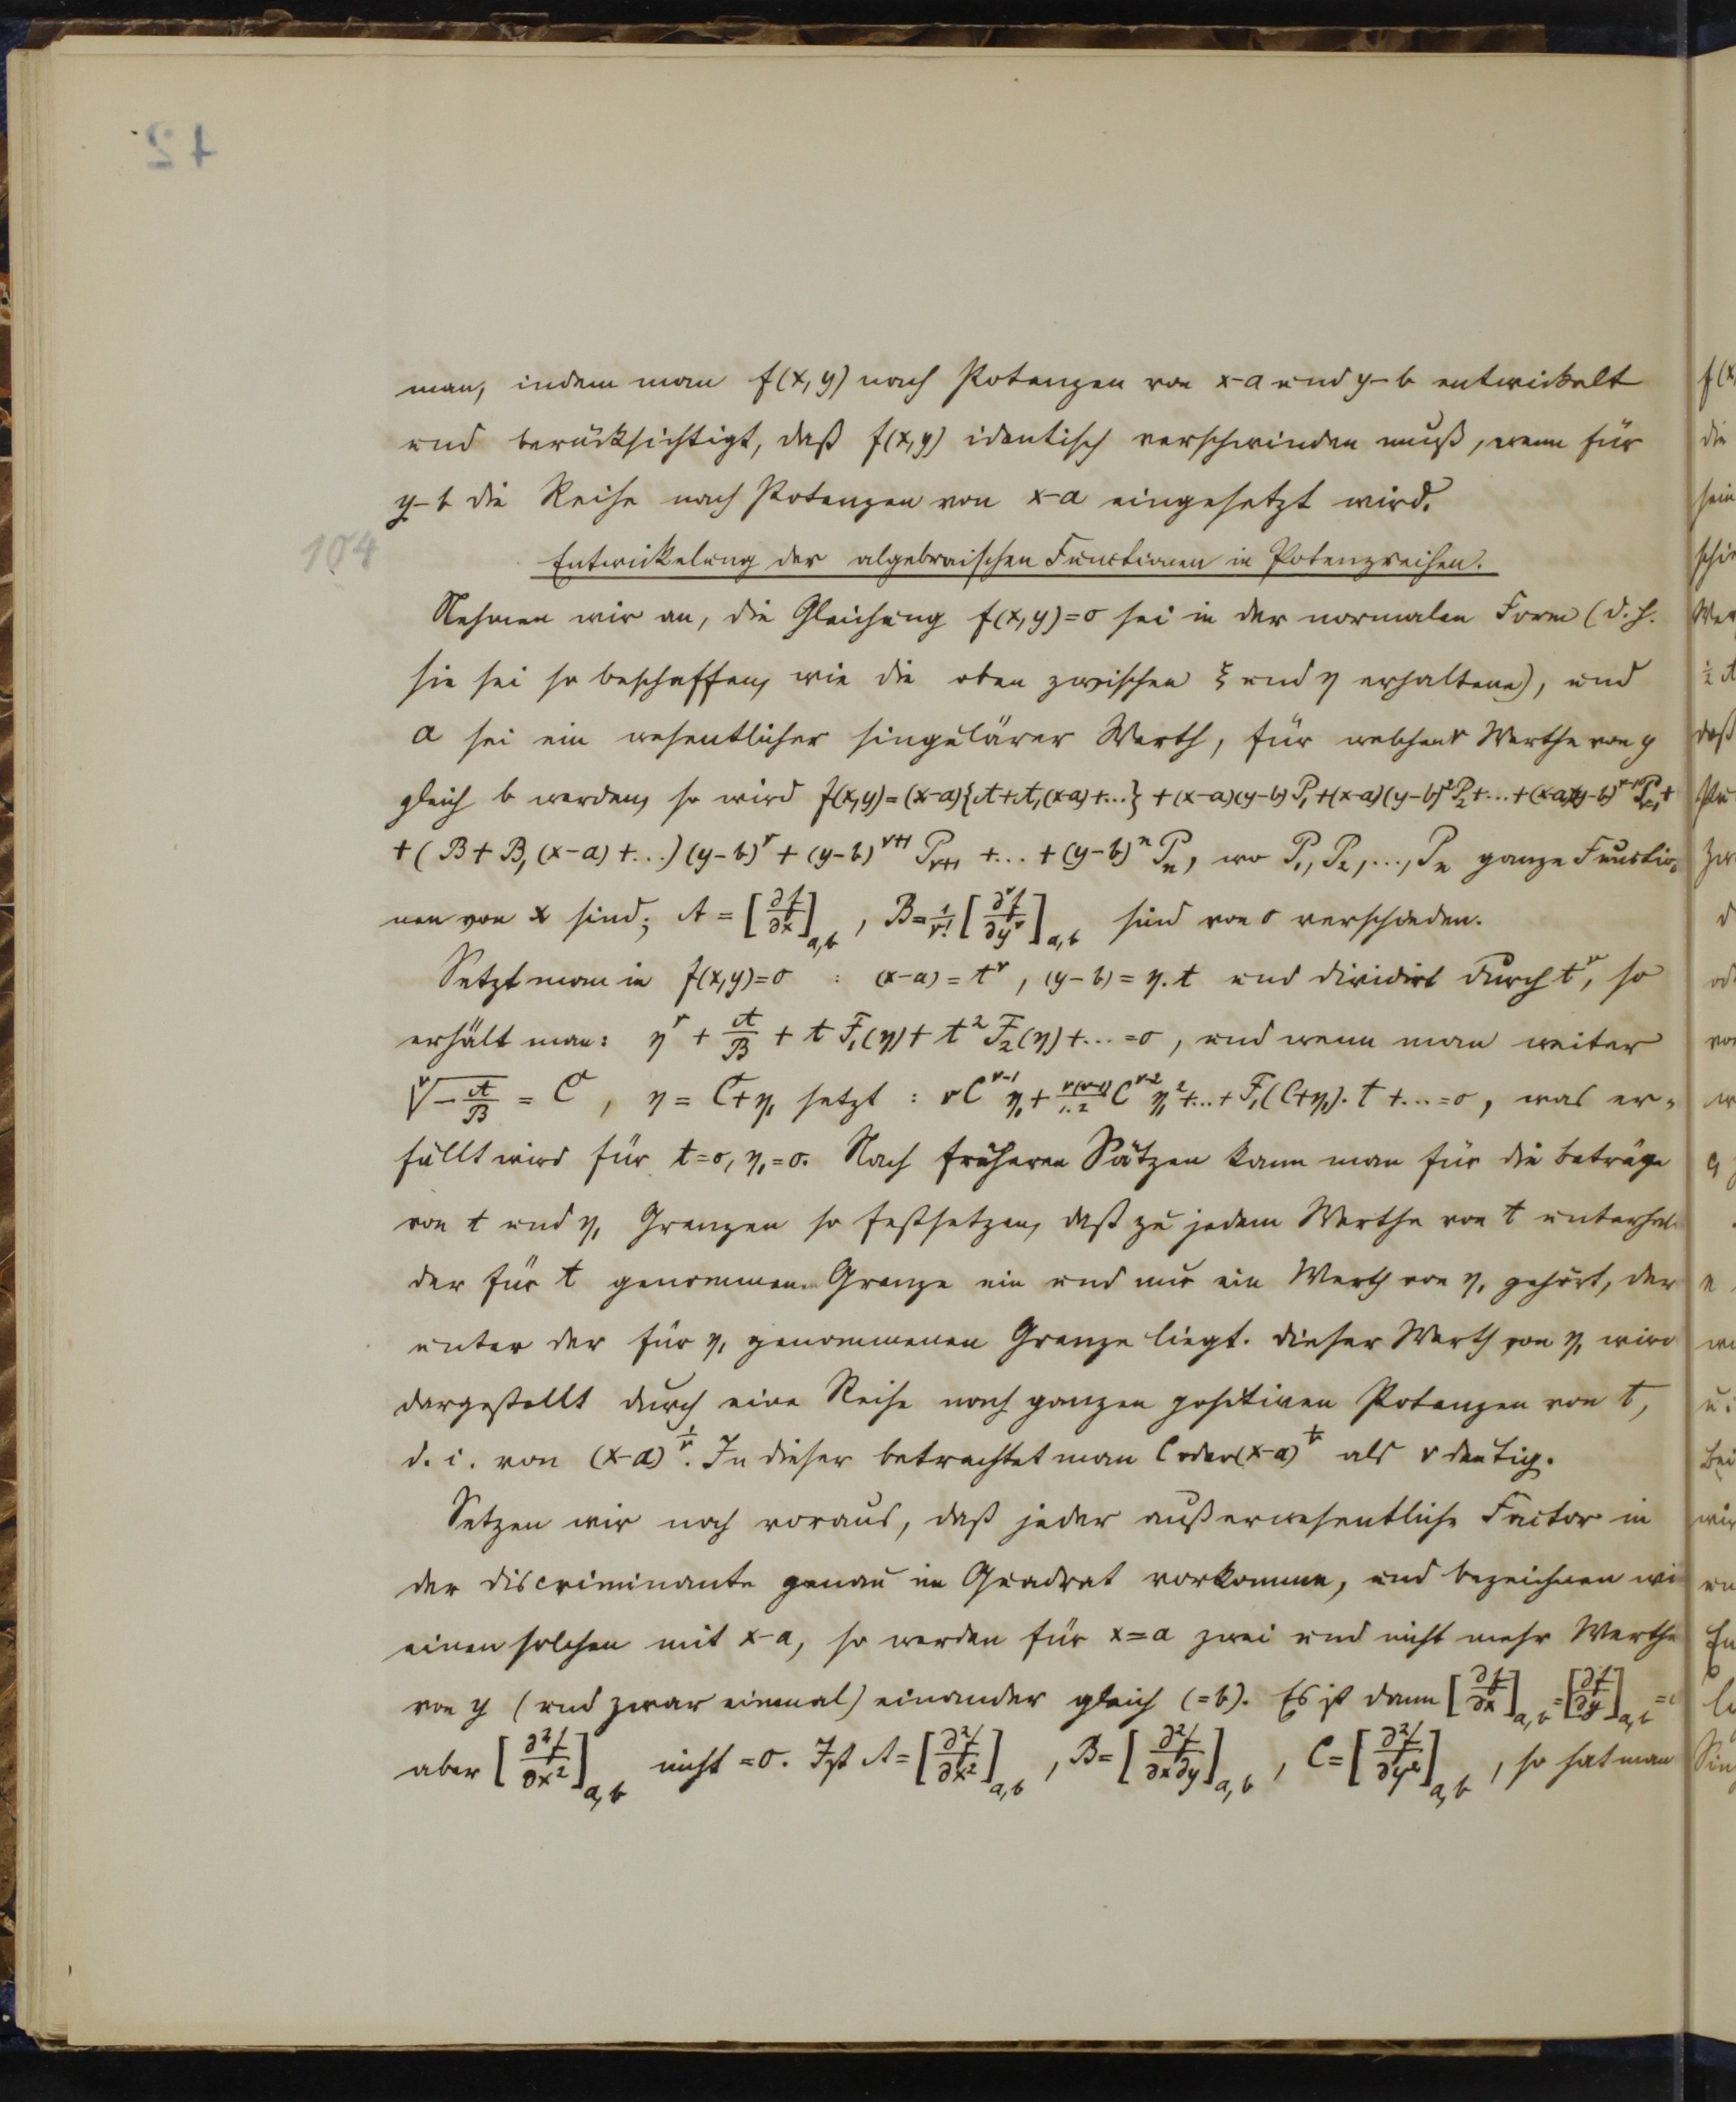 42
man, indem man f(x,y) nach Potenzen von x-a und y-b entwickelt
und berücksichtigt, daß f(x,y) identisch verschwinden muß, wenn für
y-b die Reihe nach Potenzen von x-a eingesetzt wird.
104
Entwickelung der algebraischen Functionen in Potenzreihen.
Nehmen wir an, die Gleichung f(x,y)=0 sei in der normalen Form (d.h.
sie sei so beschaffen, wie die oben zwischen ξ und η erhaltene), und
a sei ein wesentlicher singulärer Werth, für welchen r Werthe von y
gleich b werden, so wird f(x,y)=(x-a){A+A₁(x-a)+...}+(x-a)(y-b)P₁+(x-a)(y-b)²P₂+...+(x-a)(y-b)^{r-1}P_{r-1}+
+(B+B₁(x-a)+...)(y-b)^r+(y-b)^{r+1}P_{r+1}+...+(y-b)^n P_n, wo P₁,P₂,...,P_n ganze Functio-
nen von x sind; A=[∂f/∂x]_{a,b}, B=1/r![∂^r f/∂y^r]_{a,b} sind von 0 verschieden.
Setzt man in f(x,y)=0 : (x-a)=t^r, (y-b)=η.t und dividirt durch t^r, so
erhält man: η^r+A/B+tF₁(η)+t²F₂(η)+...=0, und wenn man weiter
\sqrt[r]{-A/B}=C, η=C+η₁ setzt : rC^{r-1}η₁+r(r-1)/1.2 C^{r-2}η₁²+...+F₁(C+η₁).t+...=0, was er-
füllt wird für t=0, η₁=0. Nach früheren Sätzen kann man für die beträge
von t und η₁ Grenzen so festsetzen, daß zu jedem Werthe von t unterhal
der für t genommenen Grenze ein und nur ein Werth von η₁ gehört, der
unter der für η₁ genommenen Grenze liegt. Dieser Werth von η₁ wird
dargestellt durch eine Reihe nach ganzen positiven Potenzen von t,
d.i. von (x-a)^{1/r}. In dieser betrachtet man C oder (x-a)^{1/r} als r deutig.
Setzen wir noch voraus, daß jeder außerwesentliche Factor in
der Discriminante genau im Quadrat vorkomme, und bezeichnen wi
einen solchen mit x-a, so werden für x=a zwei und nicht mehr Werthe
von y (und zwar einmal) einander gleich (=b). Es ist dann [∂f/∂x]_{a,b}=[∂f/∂y]_{a,b}=
aber [∂²f/∂x²]_{a,b} nicht =0. Ist A=[∂²f/∂x²]_{a,b}, B=[∂²f/∂x∂y]_{a,b}, C=[∂²f/∂y²]_{a,b}, so hat man